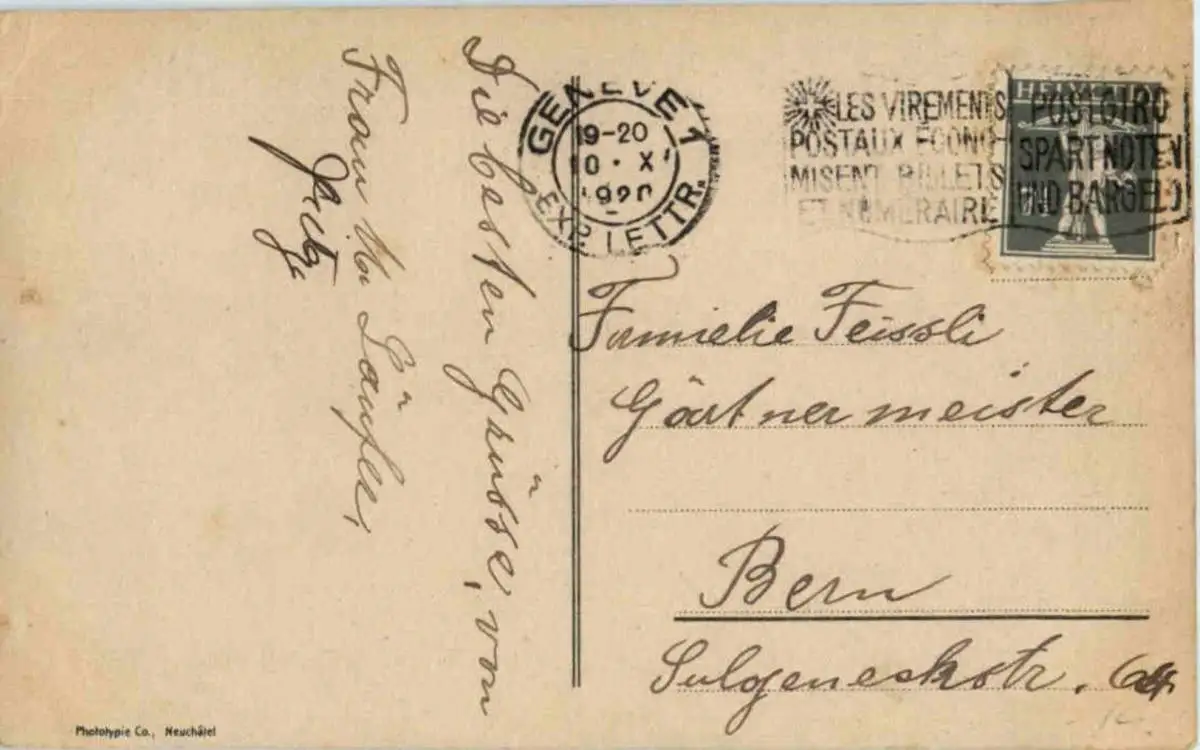 Die besten Grüsse, von
Frau
GENEVE 1
19-20
10 · X
1920
EXP. LETTR.
LES VIREMENTS
POSTAUX ECONO-
MISENT BILLETS
ET NUMERAIRE
POSTGIRO
SPART NOTEN
UND BARGELD
HELVETIA
Familie Feissli
Gärtnermeister
Bern
Sulgeneckstr.
Phototypie Co., Neuchâtel